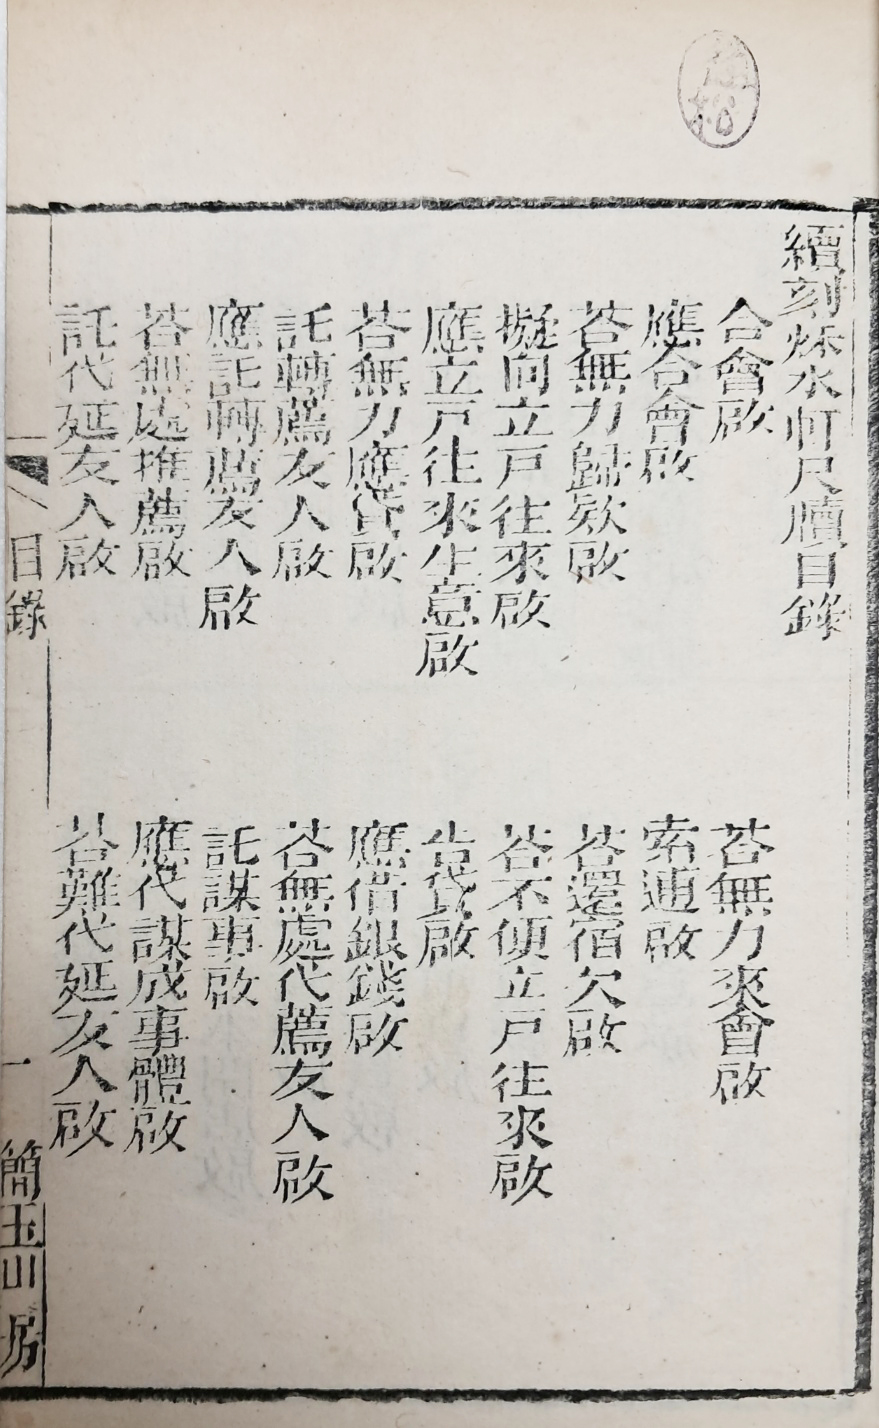 續刻秌水軒尺牘目錄
合會啟　荅無力來會啟
應合會啟　索逋啟
荅無力歸欵啟　荅還宿欠啟
擬向立戸往來啟　荅不便立戸往來啟
應立戸往來生意啟　告貸啟
荅無力應貸啟　應借銀錢啟
託轉薦友人啟　荅無處代薦友人啟
應託轉薦友人啟　託謀事啟
荅無處推薦啟　應代謀成事體啟
託代延友人啟　荅難代延友人啟
目錄　一　簡玉山房